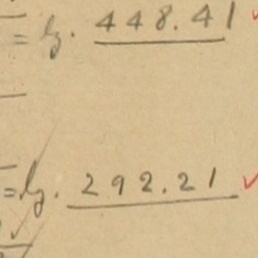 = lg. 448.41
= lg. 292.21